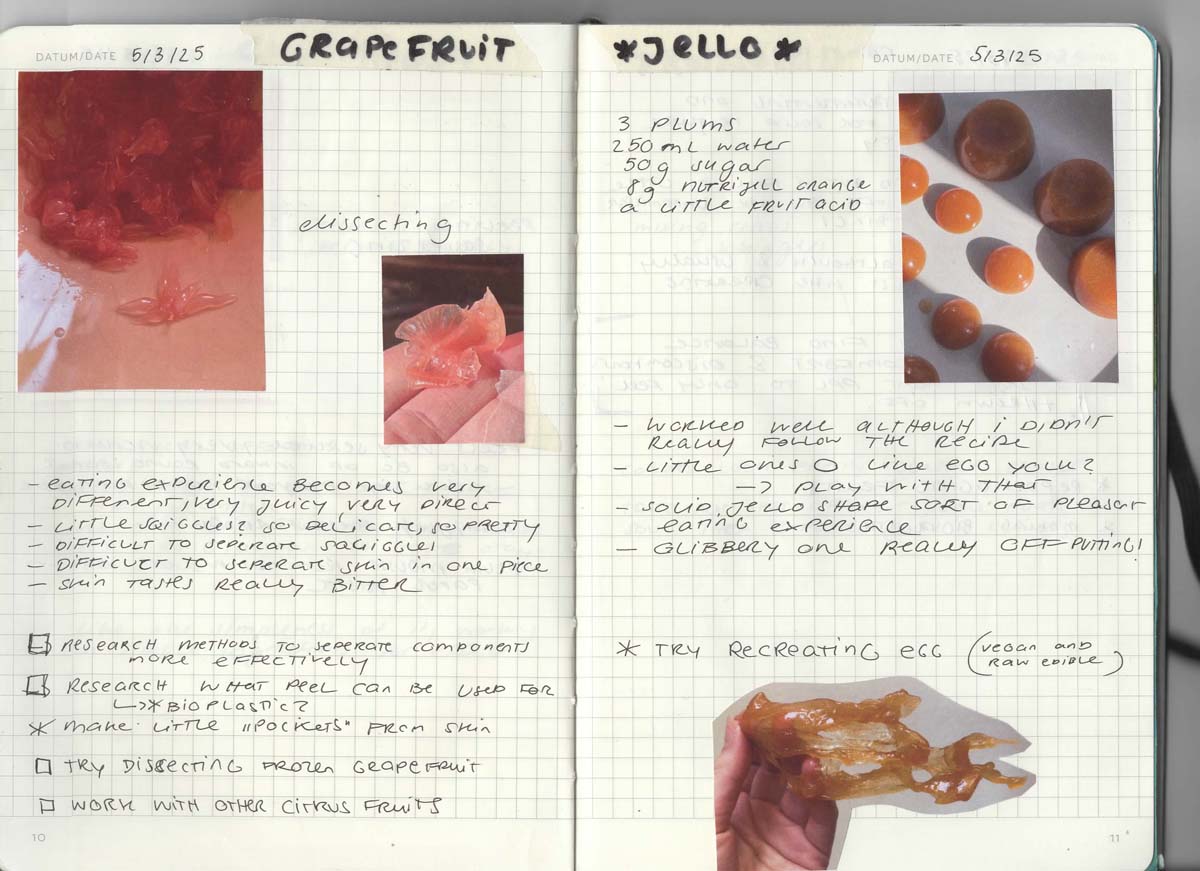 DATUM/DATE 5/3/25
GRAPEFRUIT
dissecting
- eating experience becomes very
different, very juicy very direct
- little sqiggles? so delicate, so pretty
- difficult to seperate sqiggles!
- difficult to seperate skin in one piece
- skin tastes really bitter
research methods to seperate components
more effectively
research what peel can be used for
↳* bioplastic?
* make little „pockets" from skin
try dissecting frozen grapefruit
work with other citrus fruits
10
*JELLO*
DATUM/DATE 5/3/25
3 plums
250 mL water
50g sugar
8g nutrijell orange
a little fruit acid
- worked well although i didn't
really follow the recipe
- little ones O like egg yolk?
-> play with that
- solid, jello shape sort of pleasant
eating experience
- glibbery one really off putting!
* try recreating egg (vegan and
raw edible)
11